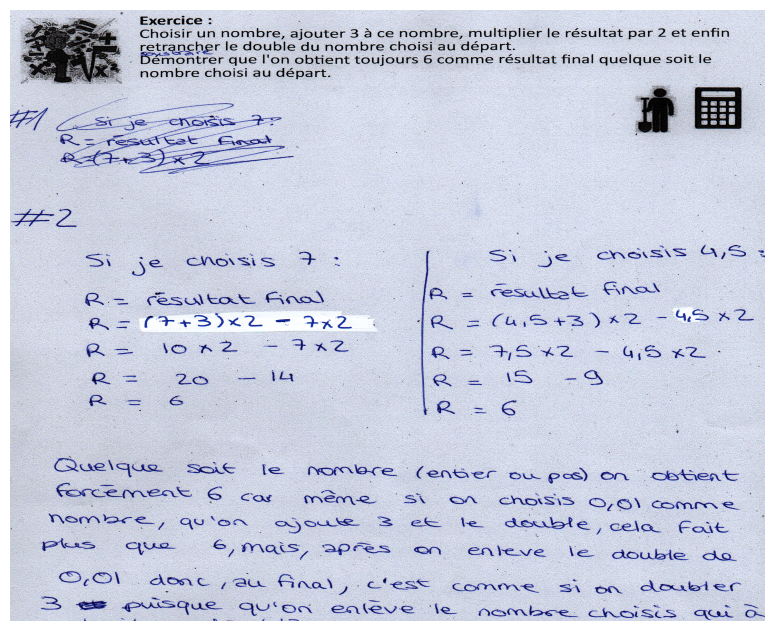 Exercice :
Choisir un nombre, ajouter 3 à ce nombre, multiplier le résultat par 2 et enfin
retrancher le double du nombre choisi au départ.
soustraire
Démontrer que l'on obtient toujours 6 comme résultat final quelque soit le
nombre choisi au départ.
#1 Si je choisis 7:
R = résultat final
R = (7+3) x 2
#2
Si je choisis 7 :
R = résultat final
R = (7+3)x2 - 7x2
R = 10 x 2 - 7x2
R = 20 - 14
R = 6
Si je choisis 4,5 :
R = résultat final
R = (4,5+3)x2 - 4,5x2
R = 7,5x2 - 4,5x2
R = 15 - 9
R = 6
Quelque soit le nombre (entier ou pas) on obtient
forcément 6 car même si on choisis 0,01 comme
nombre, qu'on ajoute 3 et le double, cela fait
plus que 6, mais, après on enleve le double de
0,01 donc, au final, c'est comme si on doubler
3 puisque qu'on enlève le nombre choisis qui à